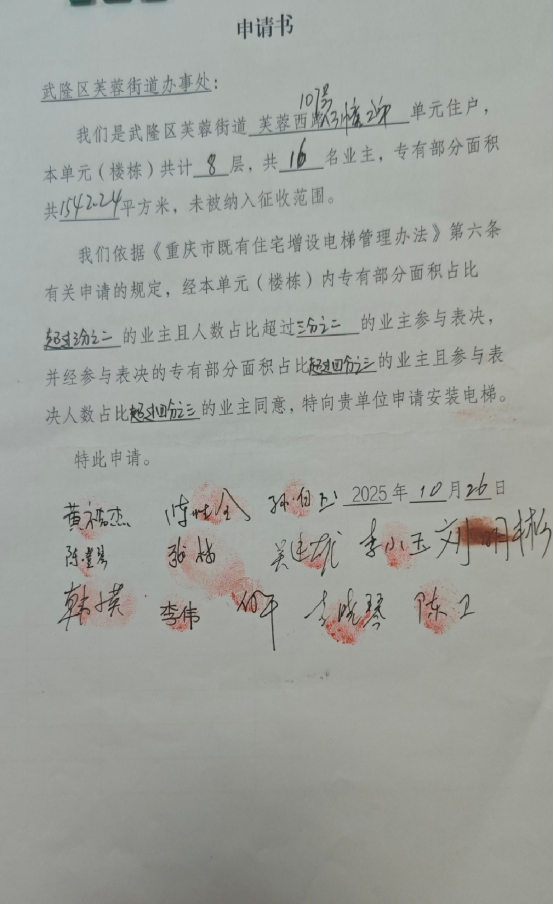 申请书
武隆区芙蓉街道办事处：
107号
我们是武隆区芙蓉街道 芙蓉西路 单元住户，
本单元（楼栋）共计 8 层，共 16 名业主，专有部分面积
共1542.24平方米，未被纳入征收范围。
我们依据《重庆市既有住宅增设电梯管理办法》第六条
有关申请的规定，经本单元（楼栋）内专有部分面积占比
超过三分之二 的业主且人数占比超过三分之二 的业主参与表决，
并经参与表决的专有部分面积占比超过四分之三的业主且参与表
决人数占比超过四分之三的业主同意，特向贵单位申请安装电梯。
特此申请。
2025年 10 月 26 日
吴建成 李小玉 刘明彬
韩英 李伟 何平 李晓琴 陈卫